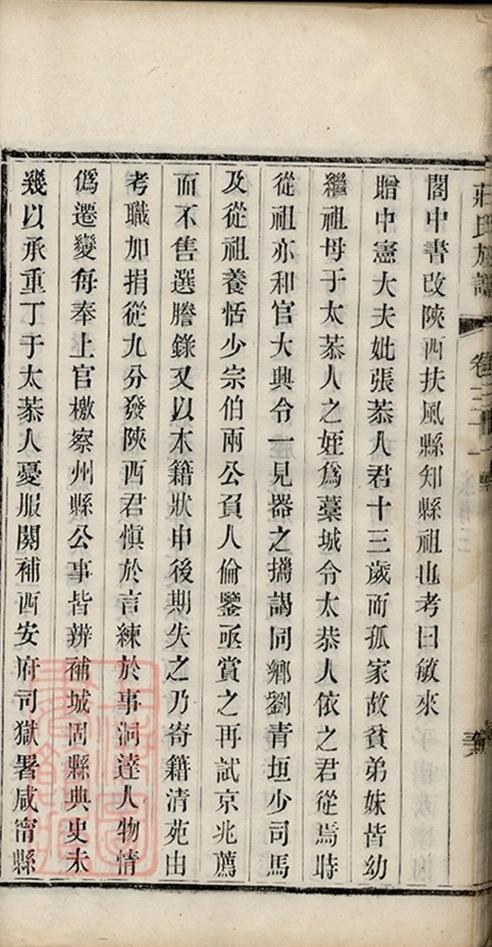 莊氏族譜 卷三
閣中書改陝西扶風縣知縣祖也考曰敏來
贈中憲大夫妣張恭人君十三歲而孤家故貧弟妹皆幼
繼祖母于太恭人之姪爲藁城令太恭人依之君從焉時
從祖亦和官大興令一見器之攜謁同鄉劉青垣少司馬
及從祖養恬少宗伯兩公負人倫鑒亟賞之再試京兆薦
而不售選謄錄又以本籍狀申後期失之乃寄籍清苑由
考職加捐從九分發陝西君愼於言練於事洞達人物情
僞遷變每奉上官檄察州縣公事皆辨補城固縣典史未
幾以承重丁于太恭人憂服闋補西安府司獄署咸甯縣